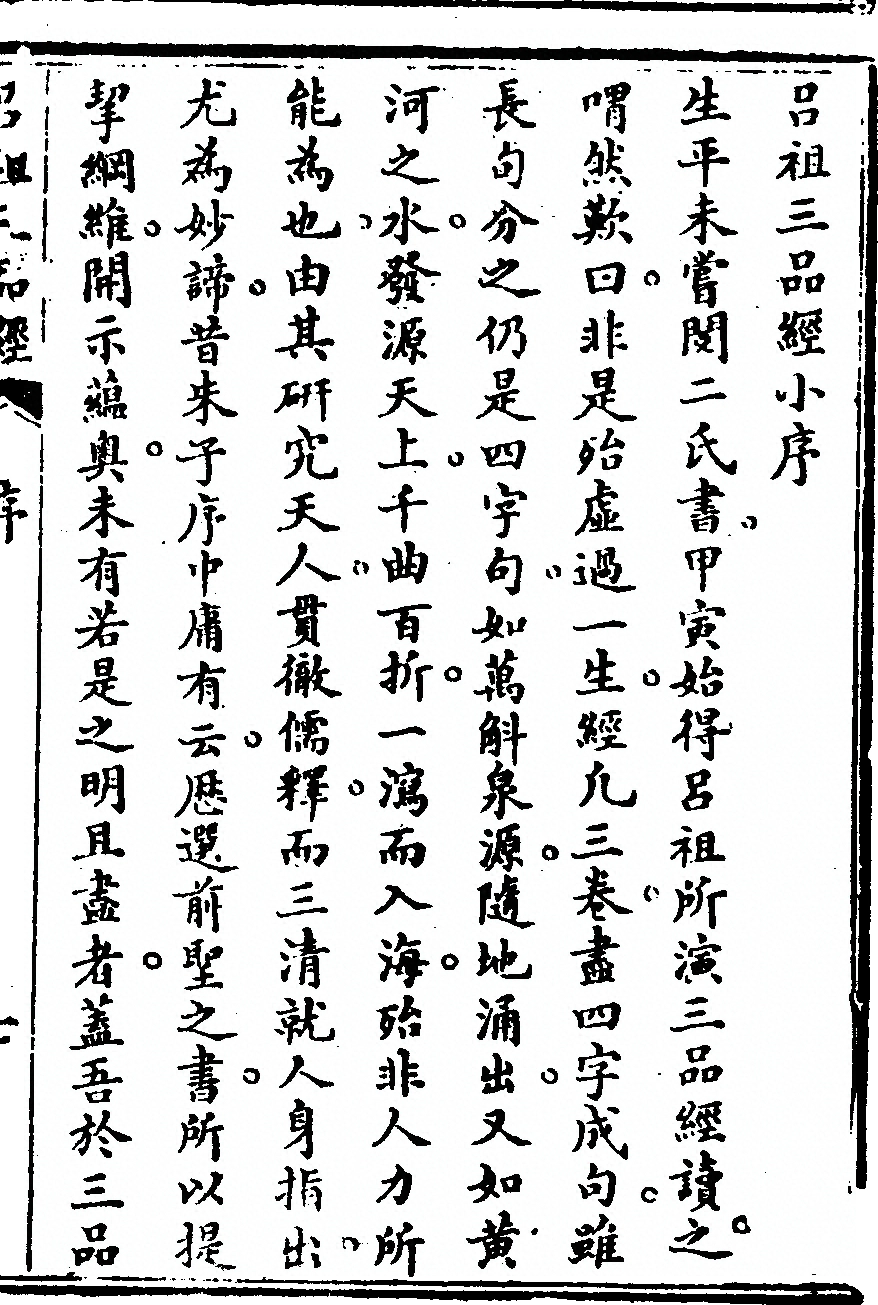 呂祖三品經小序
生平未嘗閱二氏書。甲寅始得呂祖所演三品經讀之。
喟然歎曰。非是殆虛過一生。經凡三卷。盡四字成句。雖
長句分之仍是四字句。如萬斛泉源。隨地涌出。又如黄
河之水。發源天上。千曲百折。一瀉而入海。殆非人力所
能為也。由其研究天人。貫徹儒釋。而三清就人身指出。
尤為妙諦。昔朱子序中庸有云。歷選前聖之書。所以提
挈綱維。開示蘊奥。未有若是之明且盡者。蓋吾於三品
呂祖三品經 序 一